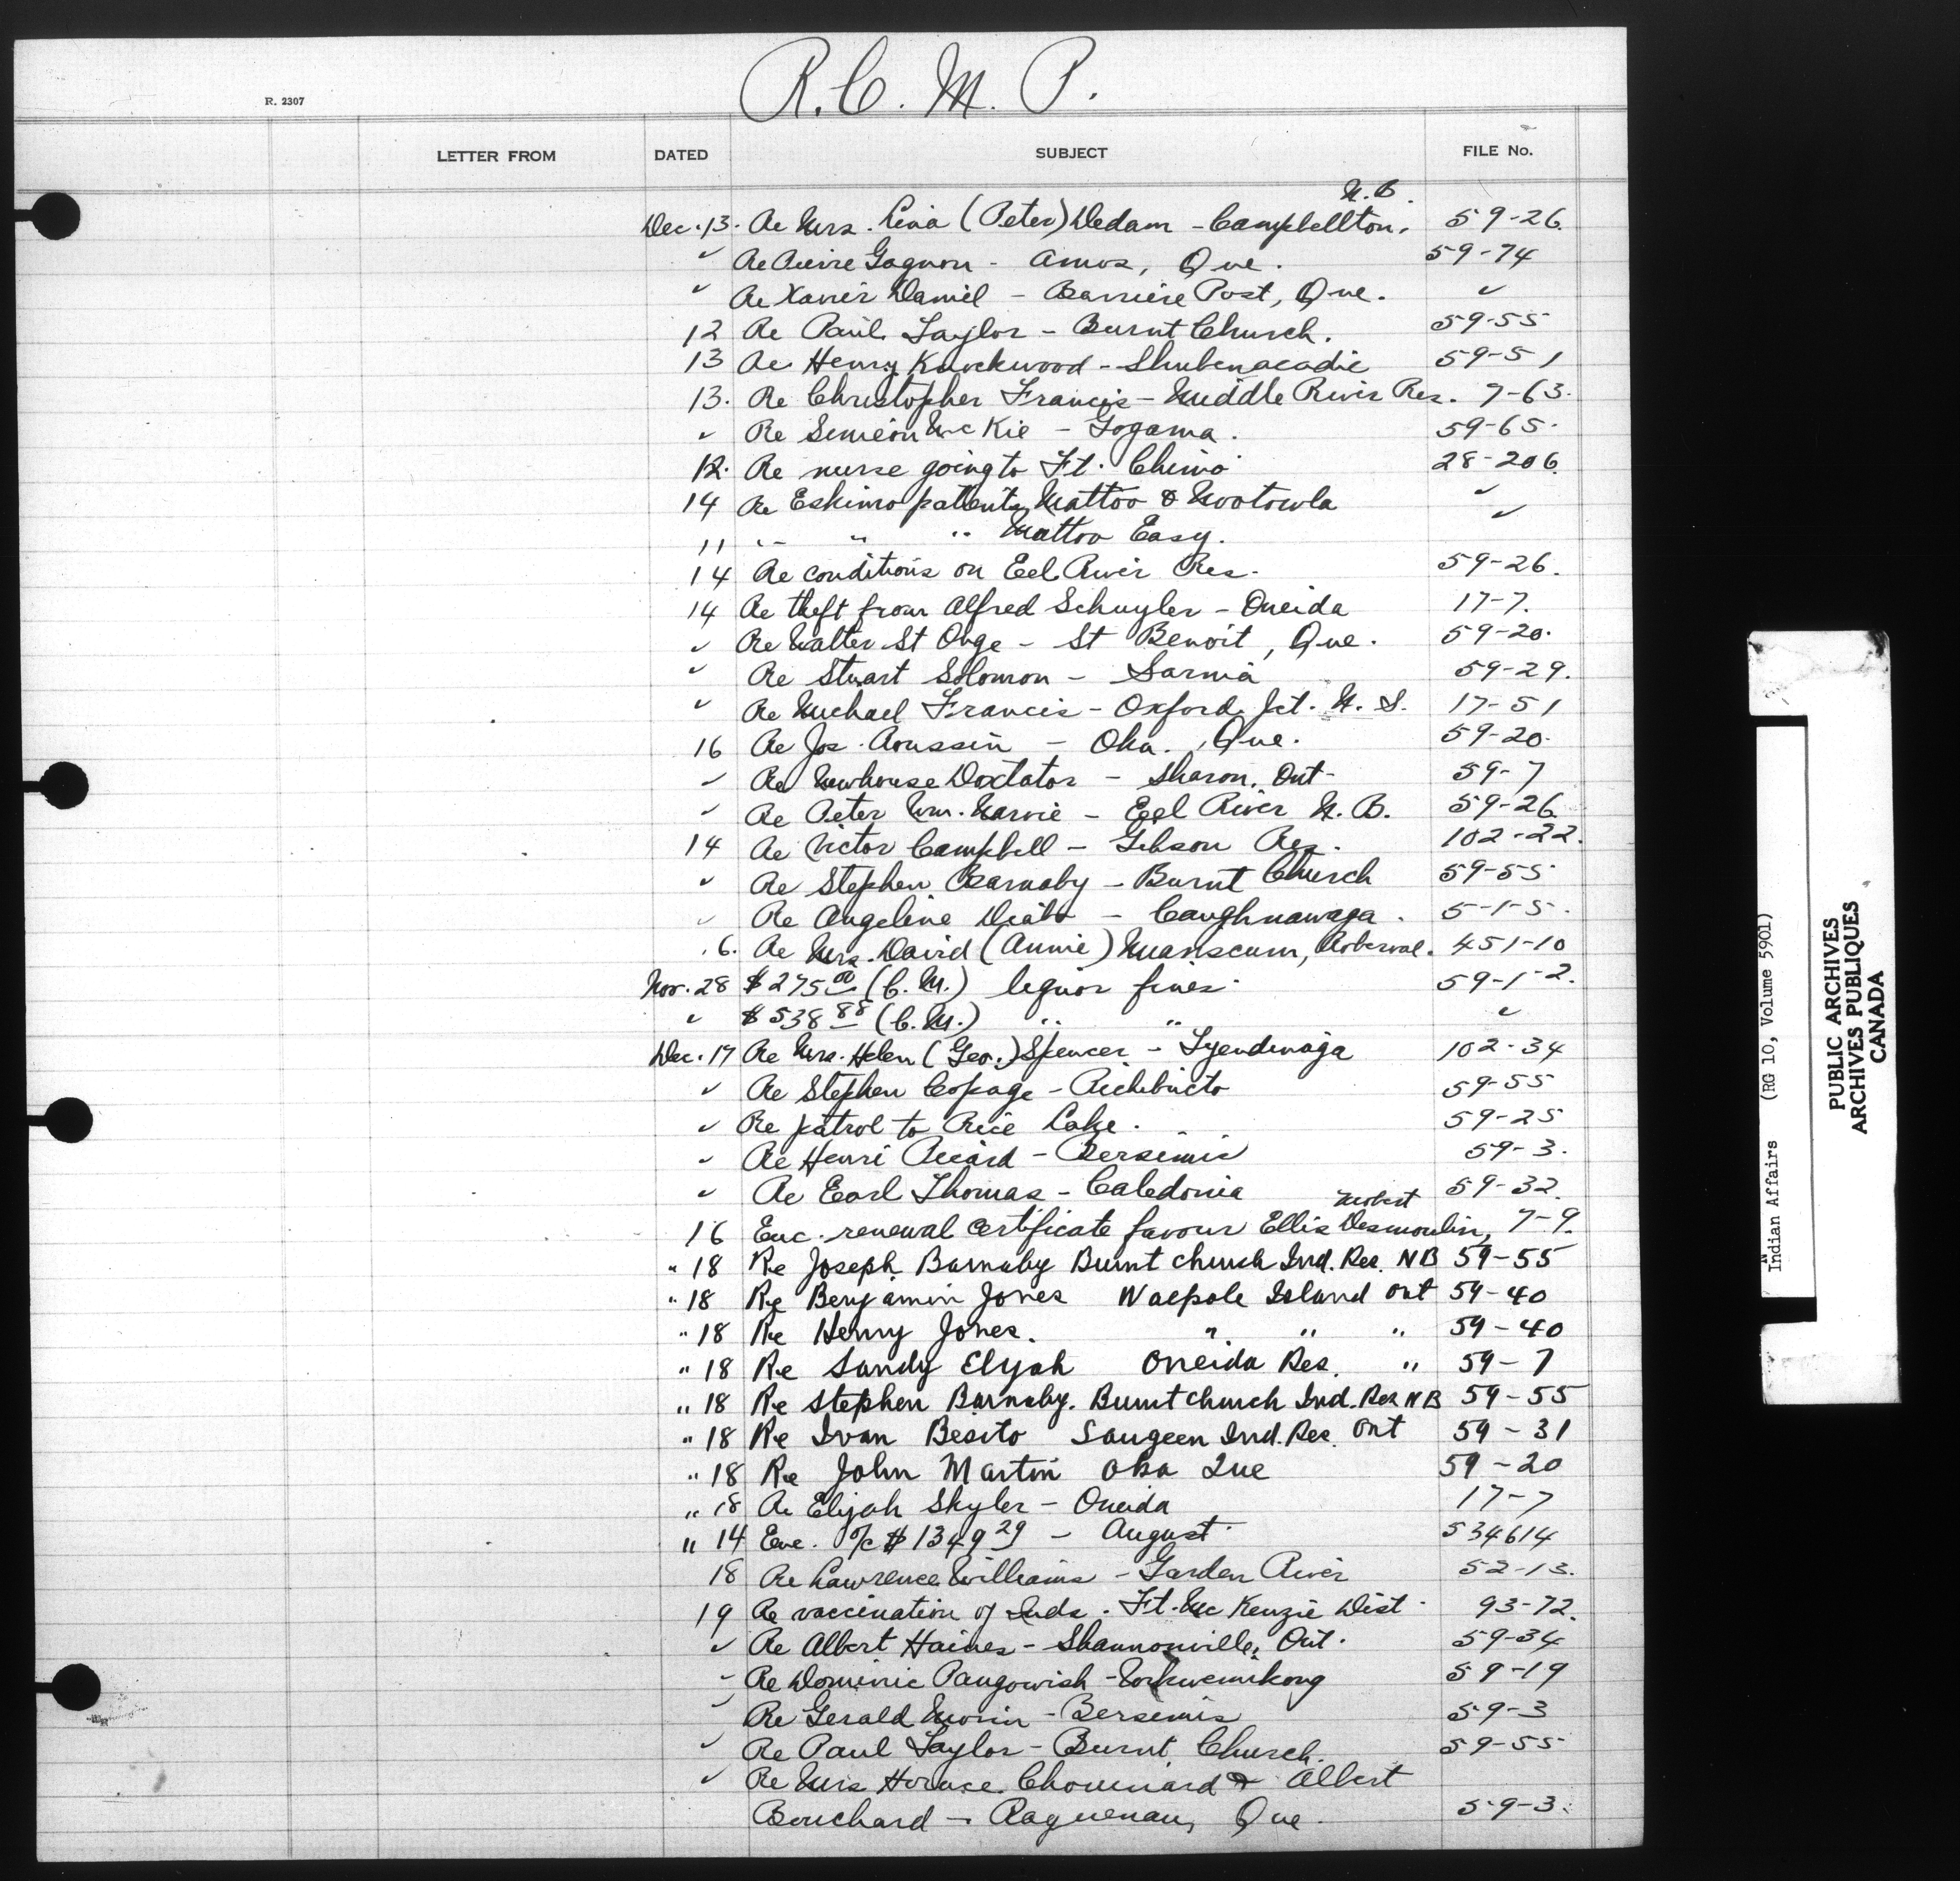 R. C. M. P.
R. 2307
LETTER FROM DATED SUBJECT FILE No.
N. B.
Dec. 13. Re Mrs. Lina (Peter) Dedam - Campbellton. 59-26
✓ Re Pierre Gagnon - Amos, Que. 59-74
✓ Re Xavier Daniel - Barriere Post, Que. ✓
12 Re Paul Taylor - Burnt Church. 59-55
13 Re Henry Knockwood - Shubenacadie 59-51
13. Re Christopher Francis - Middle River Res. 7-63.
✓ Re Simeon McKie - Gogama. 59-65.
12. Re nurse going to Ft. Chimo 28-206.
14 Re Eskimo patients Mattoo & Nootowla ✓
11 " " " Mattoo Easy. ✓
14 Re conditions on Eel River Res. 59-26.
14 Re theft from Alfred Schuyler - Oneida 17-7.
✓ Re Walter St Onge - St Benoit, Que. 59-20.
✓ Re Stuart Solomon - Sarnia 59-29.
✓ Re Michael Francis - Oxford Jct. N. S. 17-51
16 Re Jos. Roussin - Oka. Que. 59-20.
✓ Re Newhouse Doxtator - Sharon, Ont- 59-7
✓ Re Peter Wm. Narvie - Eel River N. B. 59-26
14 Re Victor Campbell - Gibson Res. 102-22.
✓ Re Stephen Barnaby - Burnt Church 59-55
✓ Re Angeline Diabo - Caughnawaga. 5-1-5.
.6. Re Mrs. David (Annie) Nuaniscum, Roberval. 451-10
Nov. 28 $275.00 (C. M.) liquor fines 59-1-2.
✓ $538 88 (C. M.) " " ✓
Dec. 17 Re Mrs. Helen (Geo.) Spencer - Tyendinaga 102-34
✓ Re Stephen Copage - Richibucto 59-55
✓ Re patrol to Rice Lake. 59-25
✓ Re Henri Picard - Bersimis 59-3.
✓ Re Earl Thomas - Caledonia 59-32.
Mobert
16 Enc. renewal certificate favour Ellis Desmoulin, 7-9.
" 18 Re Joseph Barnaby Burnt church Ind. Res. NB 59-55
" 18 Re Benjamin Jones Walpole Island Ont 59-40
" 18 Re Henry Jones. " " " 59-40
" 18 Re Sandy Elijah Oneida Res. " 59-7
" 18 Re Stephen Barnaby. Burnt church Ind. Res NB 59-55
" 18 Re Ivan Besito Saugeen Ind. Res. Ont 59-31
" 18 Re John Martin Oka Que 59-20
" 18 Re Elijah Skyler - Oneida 17-7
" 14 Enc. o/c $1349 29 - August 534614
18 Re Lawrence Williams - Garden River 52-13.
19 Re vaccination of Inds. Ft. McKenzie Dist. 93-72.
✓ Re Albert Haines - Shannonville, Ont. 59-34
✓ Re Dominic Pangowish - 59-19
✓ Re Gerald Morin - Bersimis 59-3
✓ Re Paul Taylor - Burnt Church. 59-55
✓ Re Mrs Horace Chouinard & Albert
Bouchard - Ragueneau, Que. 59-3.
Indian Affairs (RG 10, Volume 5901)
PUBLIC ARCHIVES
ARCHIVES PUBLIQUES
CANADA